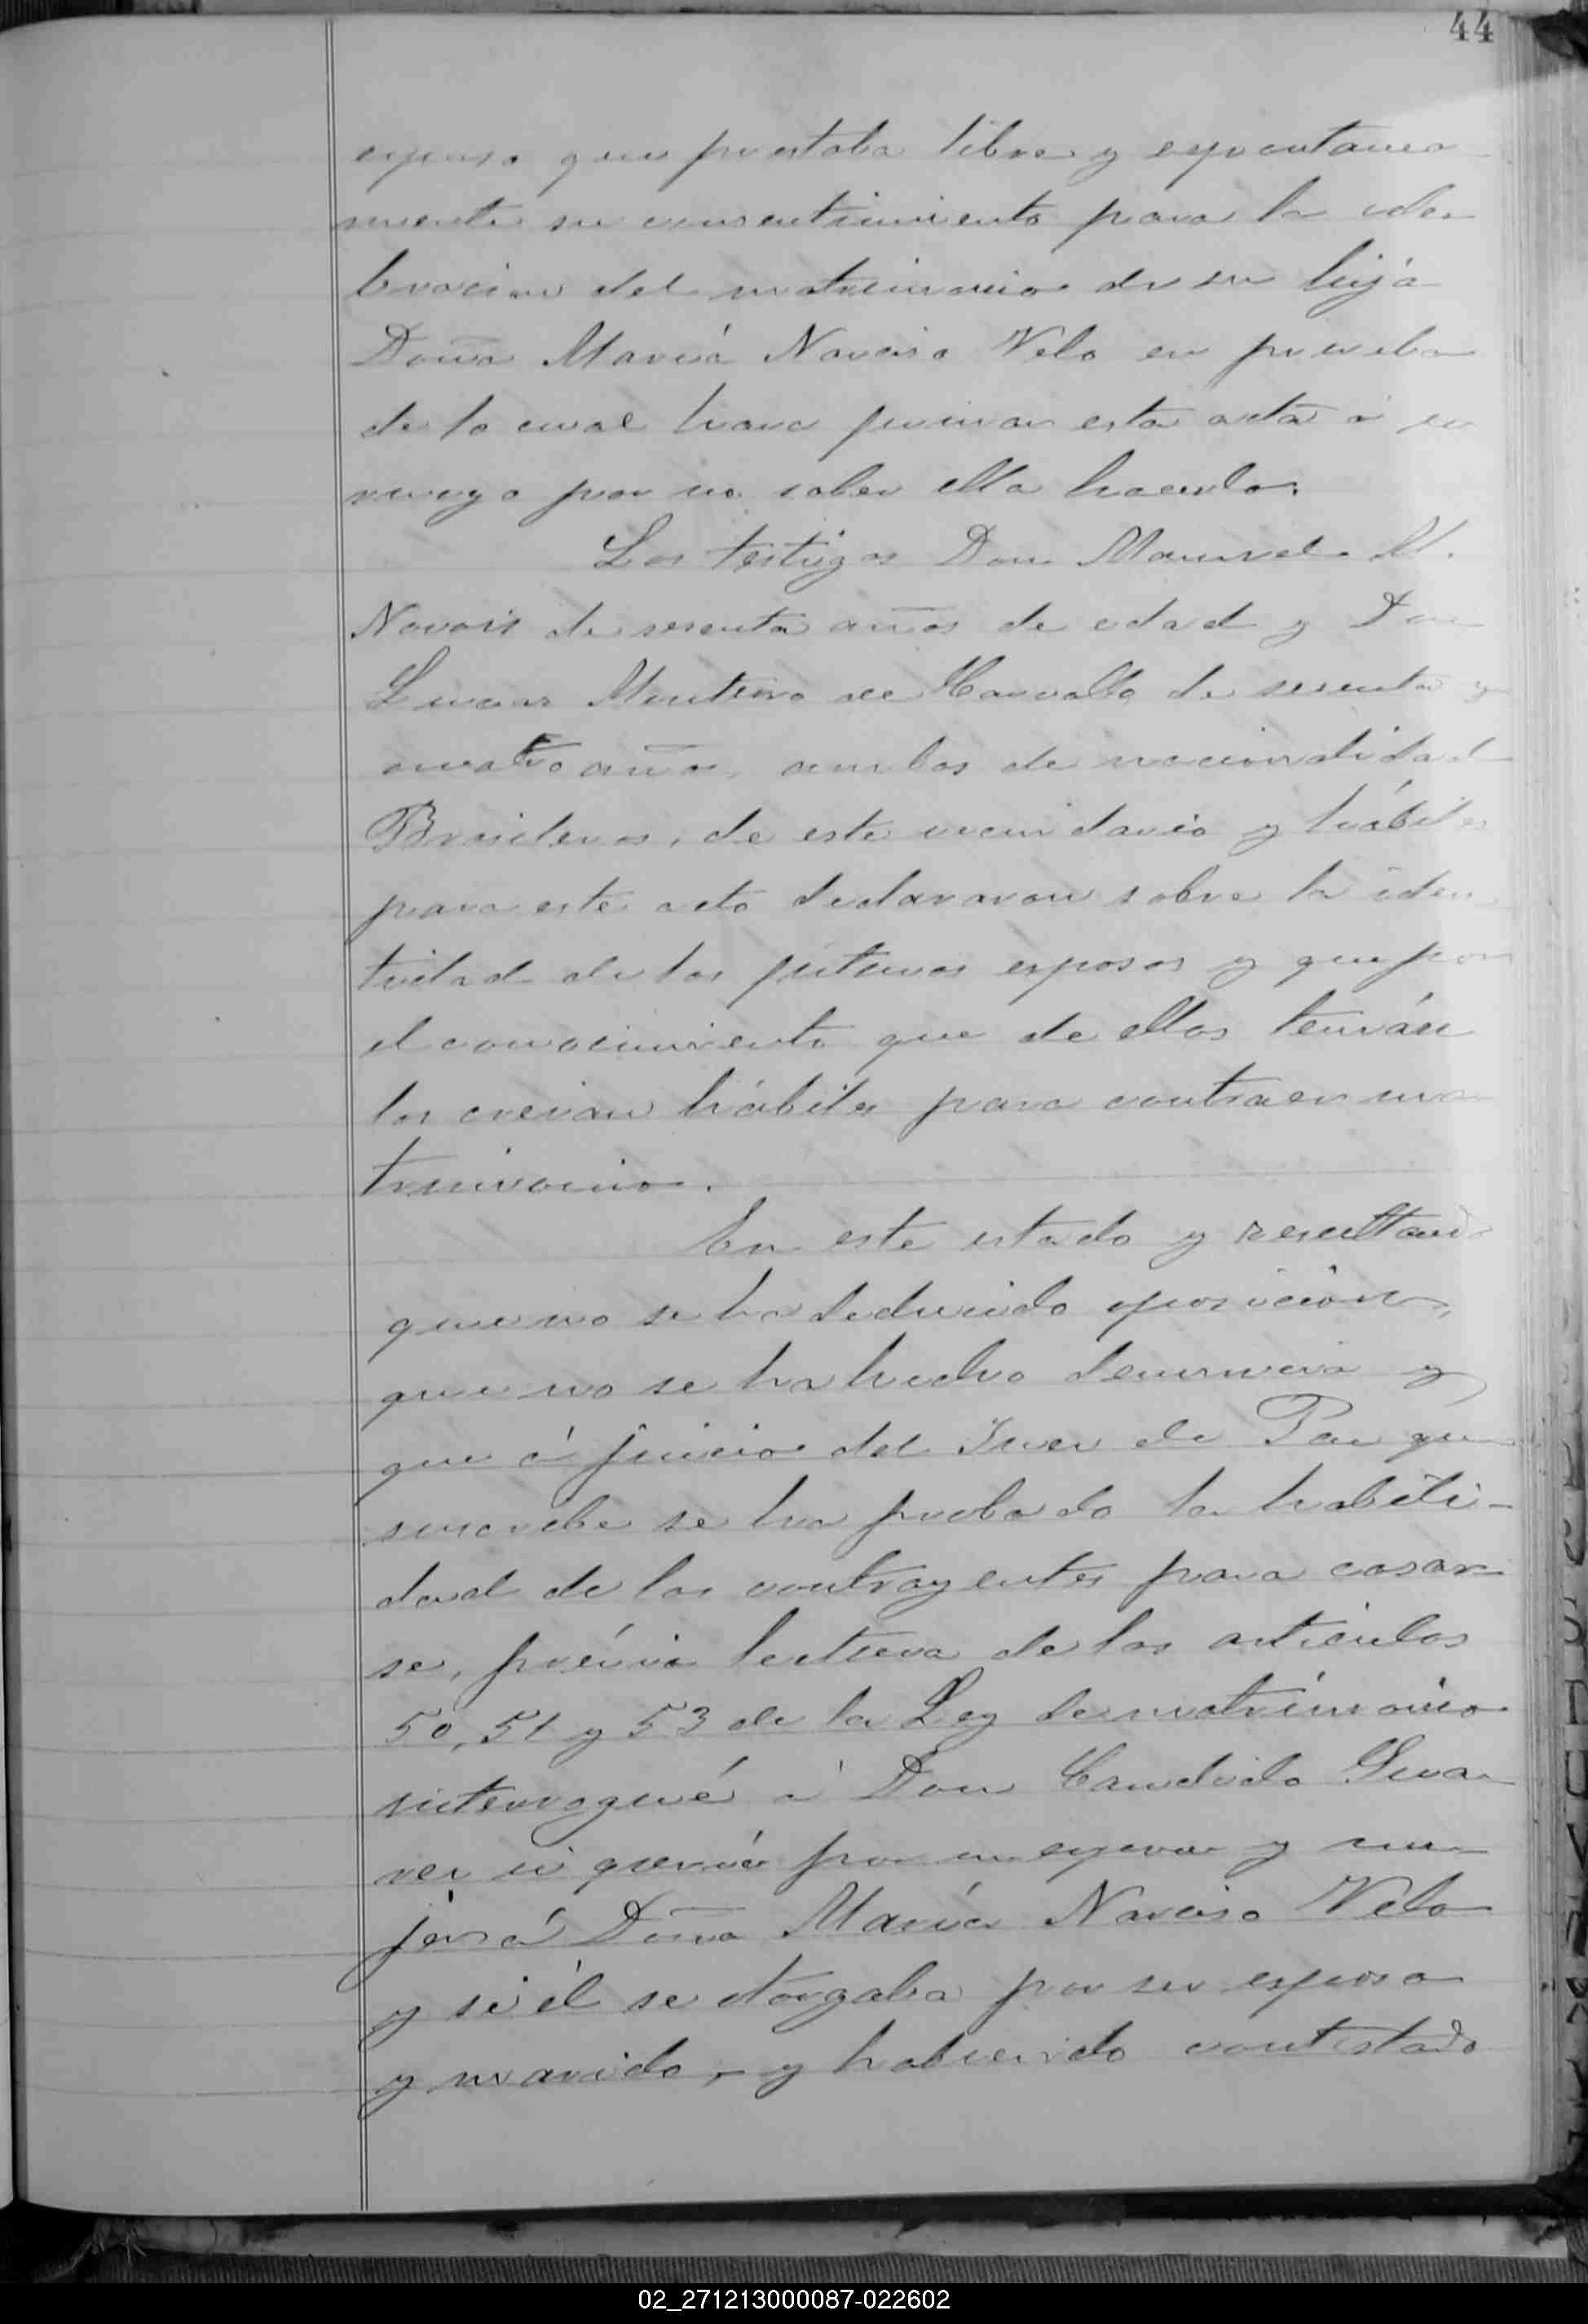 44
expuso que prestaba libre y espontanea
mente su consentimiento para la cele
bracion del matrimonio de su hija
Doña María Narcisa Velo en prueba
de lo cual hace firmar esta acta á su
ruego por no saber ella hacerlo.
Los testigos Don Manuel M.
Novois de sesenta años de edad y Don
Lucas Monteiro de Carvallo de sesenta y
cuatro años, ambos de nacionalidad
Brasileros, de este vecindario y hábiles
para este acto declararon sobre la iden
tidad de los futuros esposos y que por
el conocimiento que de ellos tenían
los creian hábiles para contraer ma
trimonio.
En este estado y resultando
que no se ha deducido oposición,
que no se ha hecho denuncia y
que á juicio del Juez de Paz que
suscribe se ha probado la habili-
dad de los contrayentes para casar
se, prévia lectura de los artículos
50, 51 y 53 de la Ley de matrimonio
interrogué á Don Candido Sua
rez si quería por su esposa y mu
jer á Doña María Narcisa Velo
y si él se otorgaba por su esposo
y marido, y habiendo contestado
02_271213000087-022602